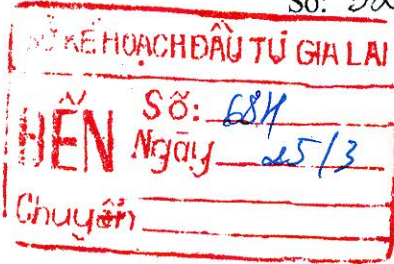 Số:
SỞ KẾ HOẠCH ĐẦU TƯ GIA LAI
ĐẾN
Số:
Ngày 25/3
Chuyển